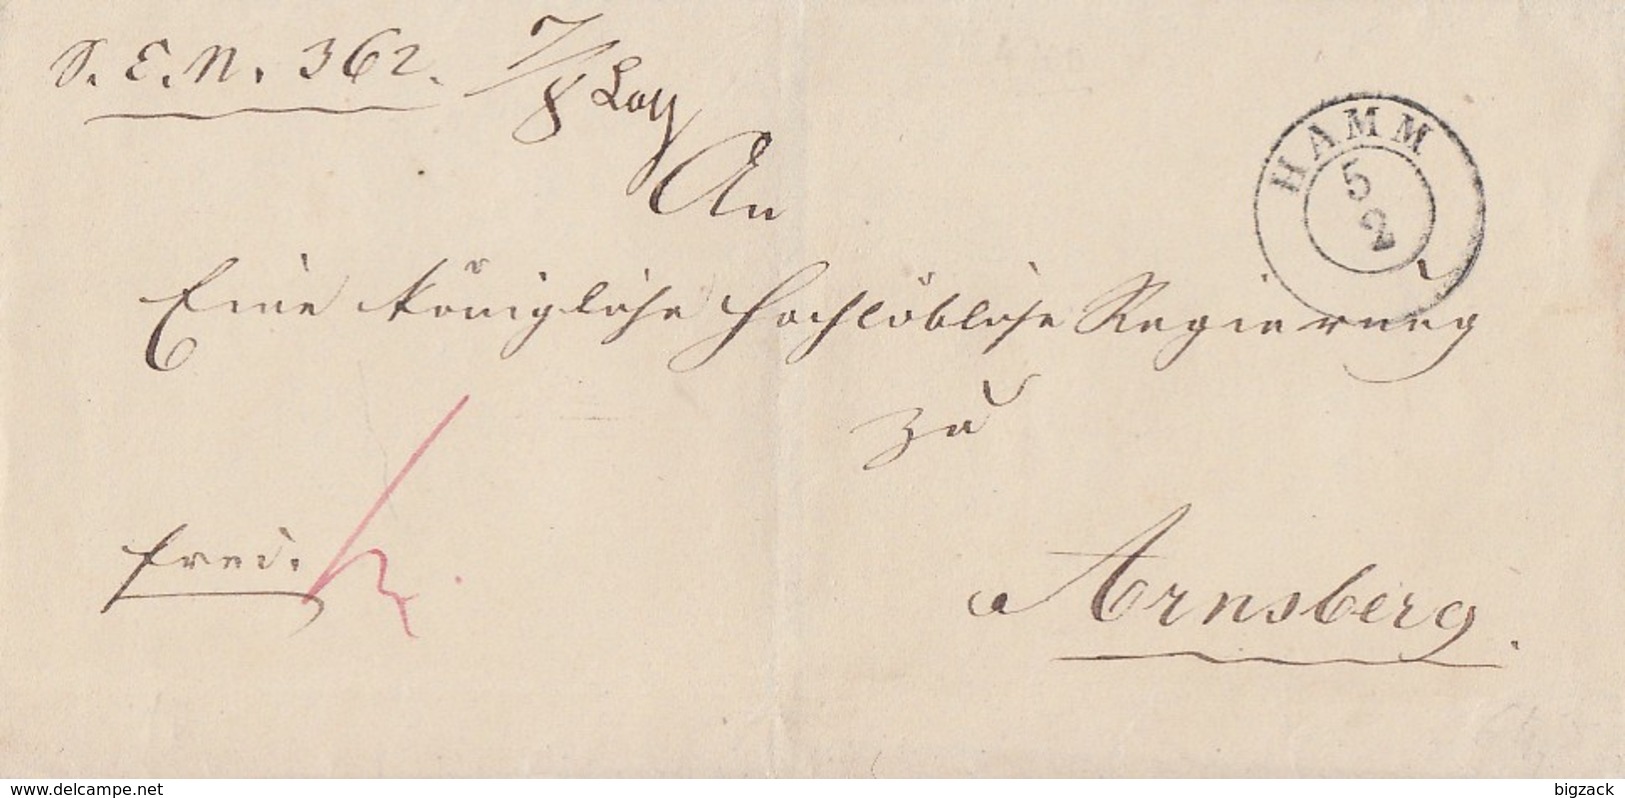 S. E. N. 362.
HAMM
5
2
An
Eine Königliche Hochlöbliche Regierung
zu
Arnsberg.
frei.
www.delcampe.net
bigzack